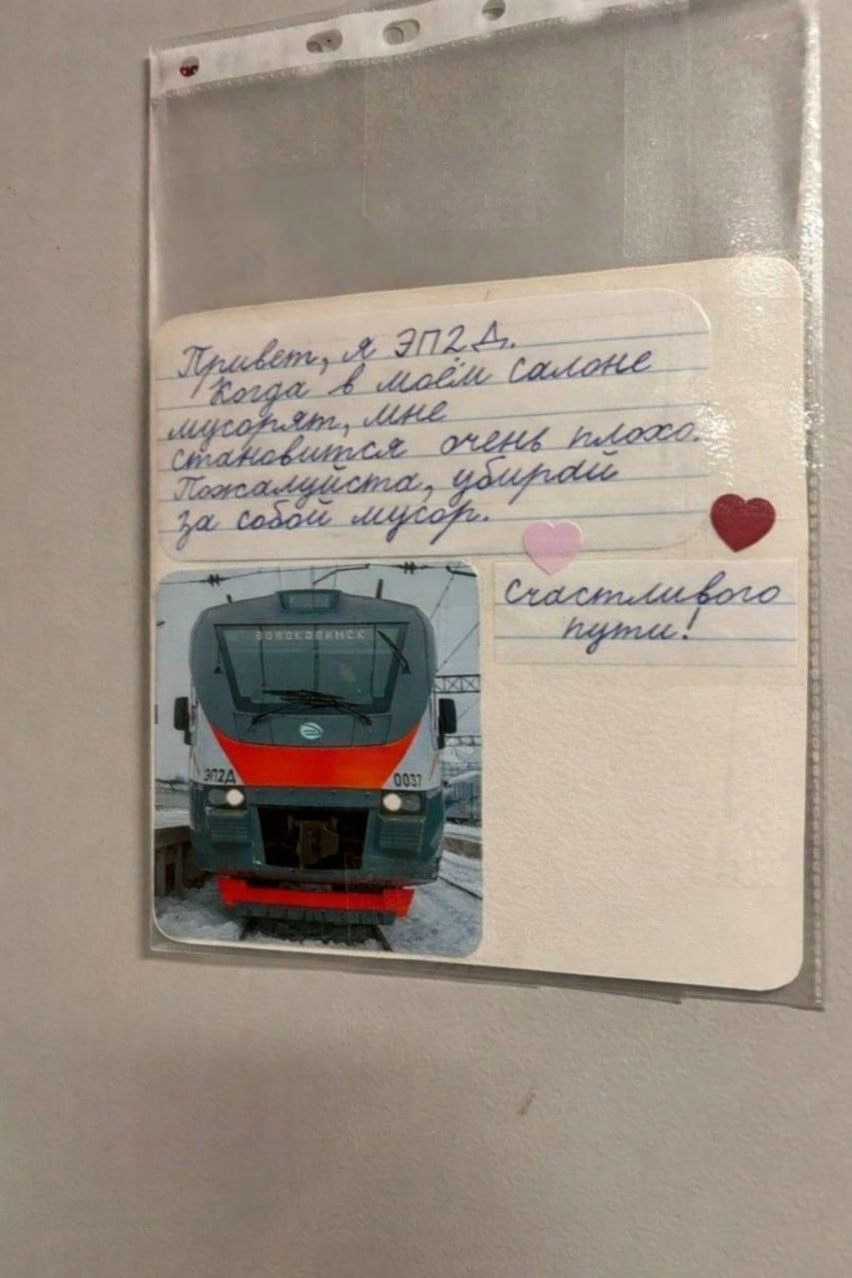 Привет, я ЭП2Д.
Когда в моём салоне
мусорят, мне
становится очень плохо.
Пожалуйста, убирай
за собой мусор.
Счастливого
пути!
ВОЛОКОЛАМСК
ЭП2Д 0037